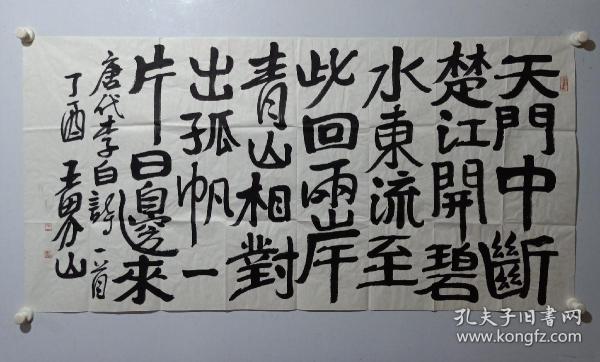 天門中斷
楚江開碧
水東流至
此回兩岸
青山相對
出孤帆一
片日邊來
唐代李白詩一首
丁酉 王勇山
孔夫子旧书网
www.kongfz.com